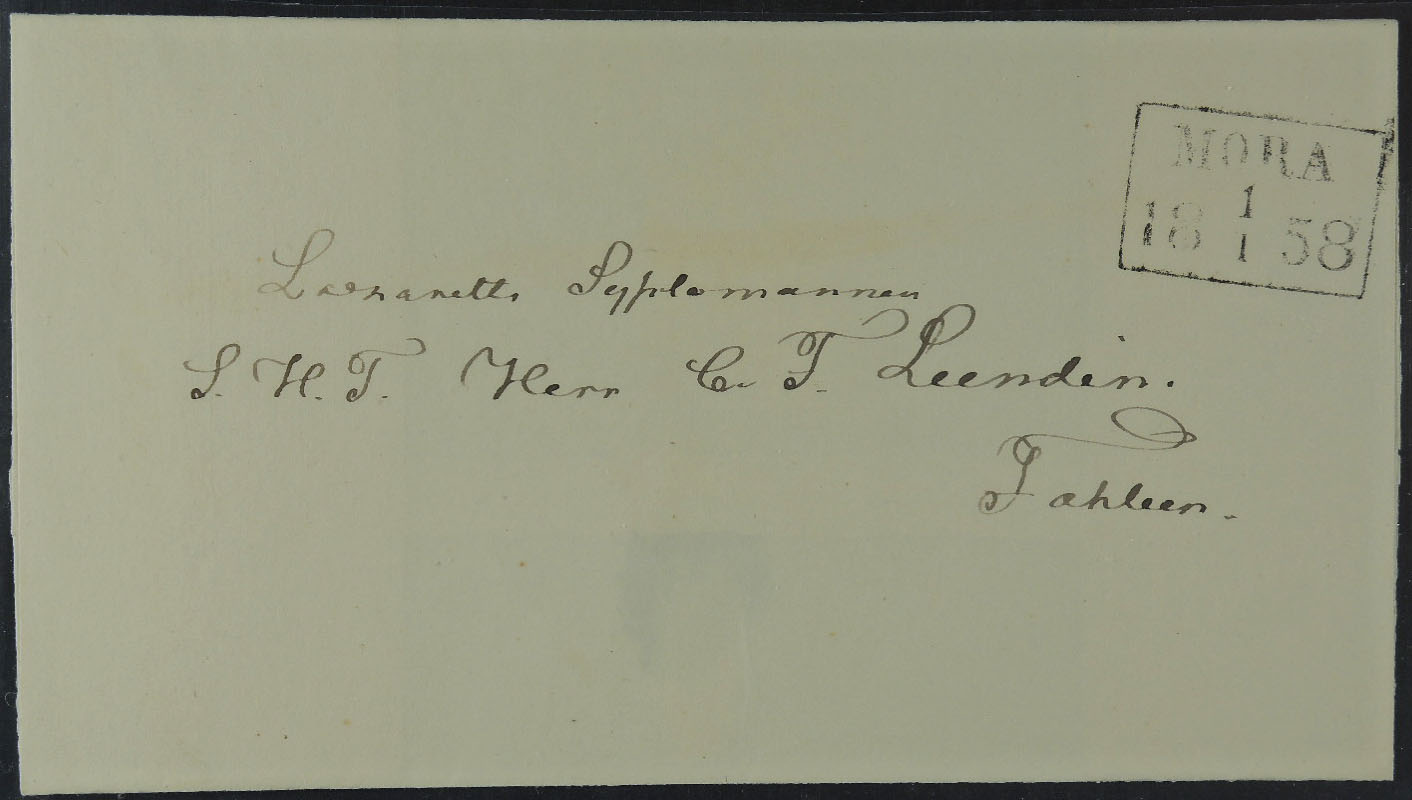 MORA
1
18 58
1
Lazaretts Sysslomannen
S. H. T. Herr C. F. Leendin.
Fahleen.